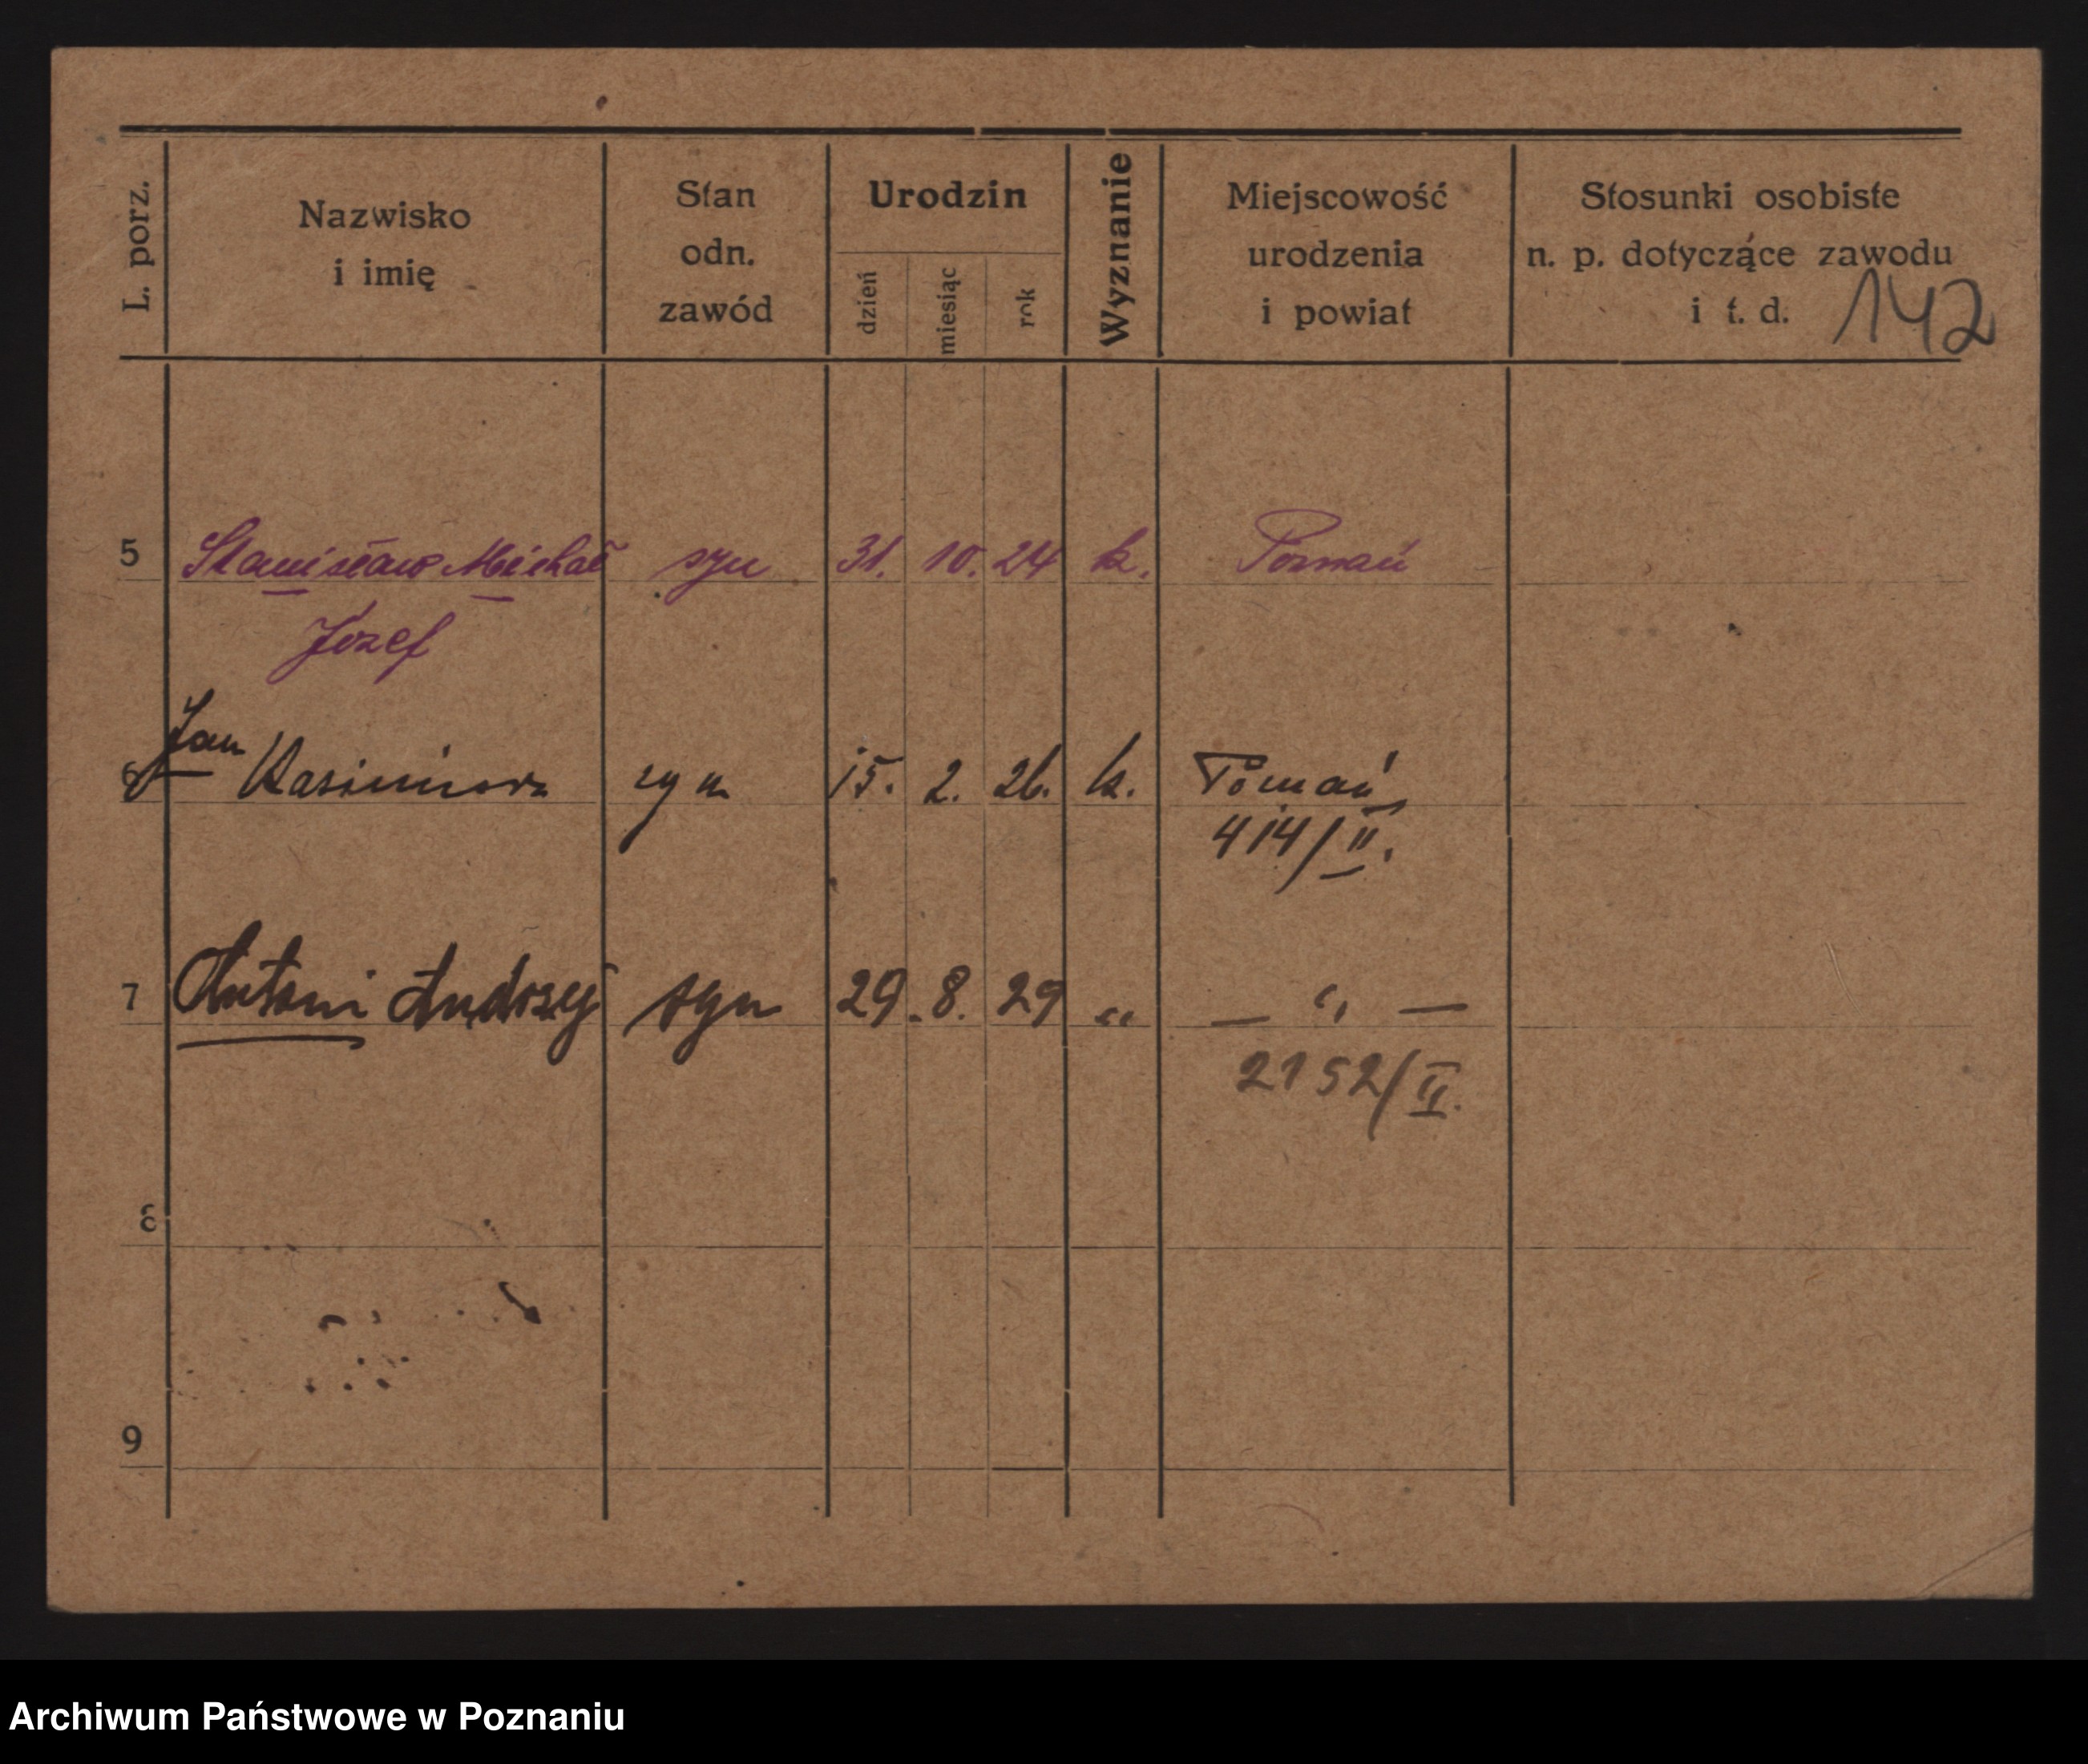 L. porz.
Nazwisko
i imię
Stan
odn.
zawód
Urodzin
dzień
miesiąc
rok
Wyznanie
Miejscowość
urodzenia
i powiat
Stosunki osobiste
n. p. dotyczące zawodu
i t. d.
142
5 Stanisław Michał syn 31. 10. 24 k. Poznań
Józef
Jan
6 Kasimierz syn 15. 2. 26. k. Poznań
414/II.
7 Antoni Andrzej syn 29. 8. 29 " — " —
2152/II.
8
9
Archiwum Państwowe w Poznaniu